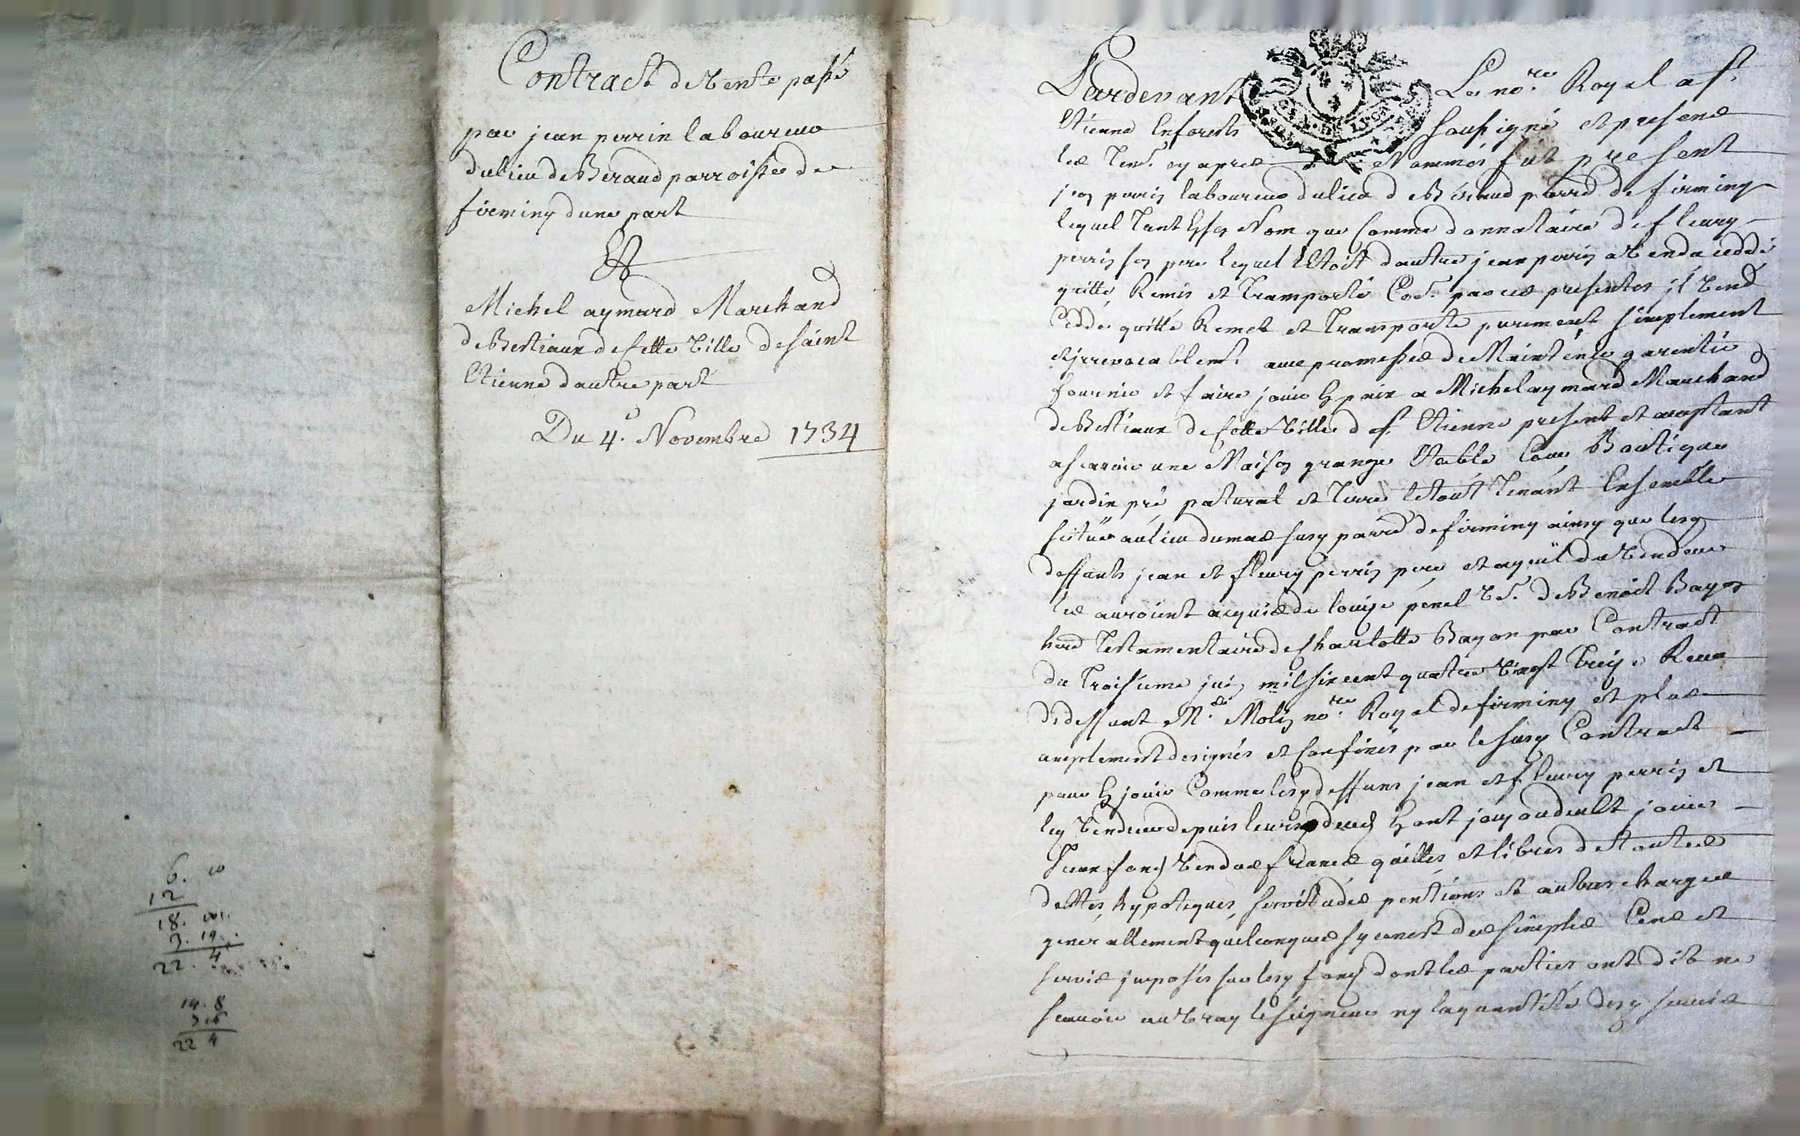 Contract de vente passé
par jean perrin laboureur
du lieu de Beraud parroisse de
firminy d'une part
Et
Michel aymard Marchand
de Bestiaux de cette ville de saint
Etienne d'autre part
Du 4e. Novembre 1734
6. 10
12
18.
3. 19.
22. 4
14. 8
22 4
Pardevant Le no.re Royal a st.
Etienne En forests soussigné et presens
les tem. cy apres nommés fut present
jean perrin laboureur du lieu de Beraud parre. de firminy
lequel tant En son Nom que comme donnataire de fleury
perrin son pere lequel l'etoit d'autre jean perrin a vendu ceddé
quitté Remis et transporté Co.e par ces presentes il vend
cedde quitte Remet et transporte purement simplement
et irrevocablemt. avec promesses de Maintenir garentir
fournir et faire jouir En paix a Michel aymard Marchand
de Bestiaux de cette ville de st. Etienne present et acceptant
a scavoir une Maison grange Etable Cour Boutique
jardin pré patural et terre le tout tenant Ensemble
situés au lieu du mas susd parre. de firminy ainsy que lesd
deffunts jean et fleury perrin pere et ayeul du vendeur
les auroient acquis de louise penel ve. de Benoist Bayon
here. testamentaire de charlotte Bayon par Contract
du troisieme juin mil six cent quatre vingt treize Receu
dedeffunt Me. Molin no.re Royal de firminy et plus
amplement designés et confinés par le susd Contract
pour En jouir Comme lesd deffuns jean et fleury perrin et
led vendeur depuis leurs deced En ont jouy ou deubt jouir
Iceux fonds vendus francs quittes et libres de toutes
dettes, hypoteques, servitudes pentions et autres charges
generallement quelconques sy ce n'est des simples Cens et
servis imposés sur lesd fonds dont les parties ont dit ne
scavoir au vray le seigneur ny la quantité desd servis